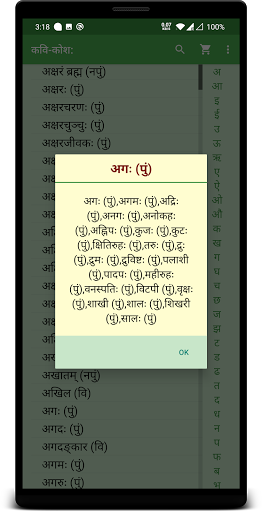 3:18
100%
कवि-कोश:
अक्षरं ब्रह्म (नपुं)
अक्षरः (पुं)
अक्षरचरणः (पुं)
अक्षरचुञ्चुः (पुं)
अक्षरजीवकः (पुं)
अगः (पुं)
अगः (पुं),अगमः (पुं),अद्रिः
(पुं),अनगः (पुं),अनोकहः
(पुं),अह्निपः (पुं),कुजः (पुं),कुटः
(पुं),क्षितिरुहः (पुं),तरुः (पुं),द्रुः
(पुं),द्रुमः (पुं),द्रुविष्टः (पुं),पलाशी
(पुं),पादपः (पुं),महीरुहः
(पुं),वनस्पतिः (पुं),विटपी (पुं),वृक्षः
(पुं),शाखी (पुं),शालः (पुं),शिखरी
(पुं),सालः (पुं)
OK
अखातम् (नपुं)
अखिल (वि)
अगः (पुं)
अगदः (पुं)
अगदङ्कार (वि)
अगमः (पुं)
अगरुः (पुं)
अ
आ
इ
ई
उ
ऊ
ऋ
ए
ऐ
ओ
औ
क
ख
ग
घ
च
छ
ज
झ
ट
ठ
ड
ढ
त
द
ध
न
प
फ
ब
भ